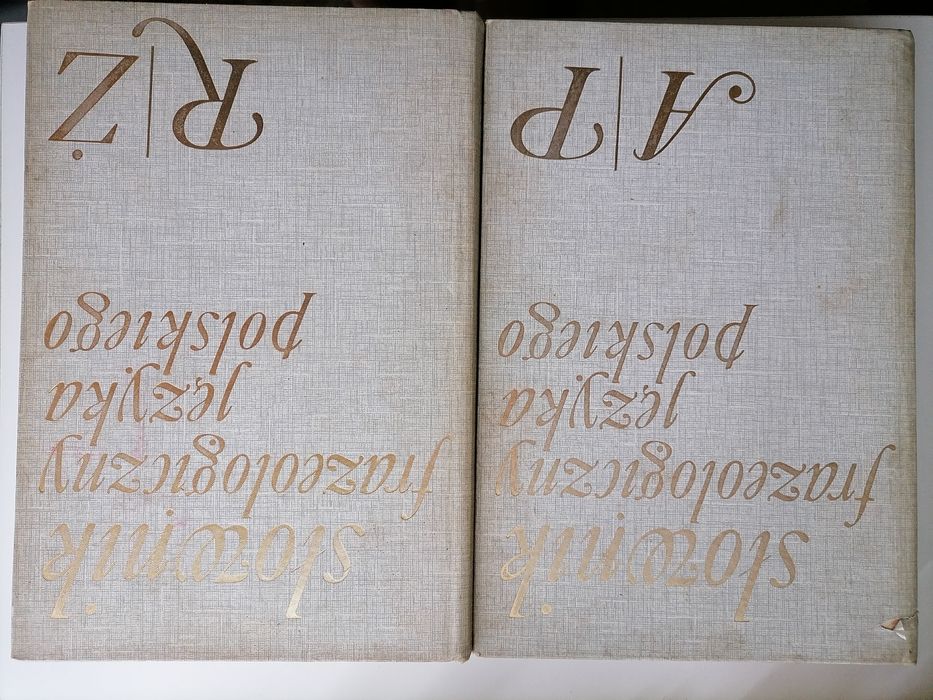 słownik
frazeologiczny
języka
polskiego
A|P
słownik
frazeologiczny
języka
polskiego
R|Ż